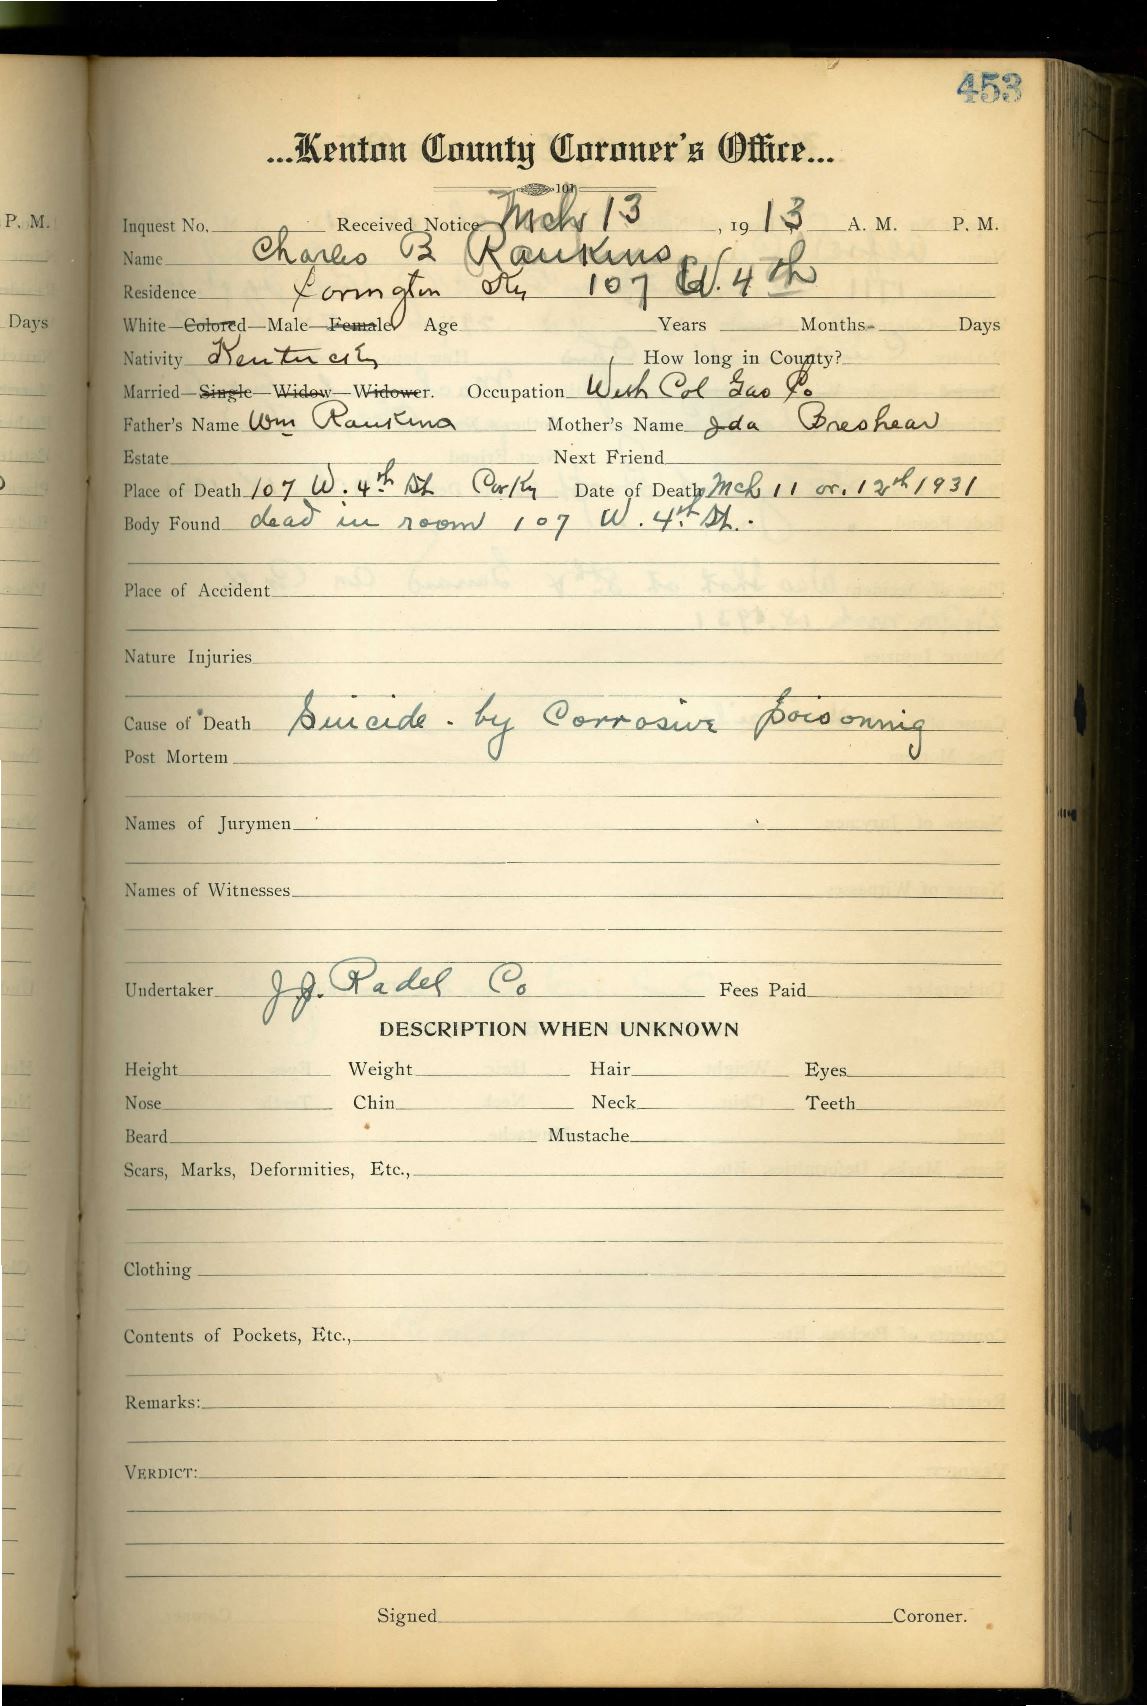 453
...Kenton County Coroner's Office...
101
P. M. Inquest No. Received Notice Mch 13, 1913 A. M. P. M.
Name Charles B Rankins
Residence Covington Ky 107 W. 4th
Days White—Colored—Male—Female Age Years Months Days
Nativity Kentucky How long in County?
Married—Single—Widow—Widower. Occupation With Col Gas Co
Father's Name Wm Rankins Mother's Name Ida Breshear
Estate Next Friend
Place of Death 107 W. 4th St Cov Ky Date of Death Mch 11 or. 12th 1931
Body Found dead in room 107 W. 4th St.
Place of Accident
Nature Injuries
Cause of Death Suicide - by Corrosive poisonnig
Post Mortem
Names of Jurymen
Names of Witnesses
Undertaker J.J. Radel Co Fees Paid
DESCRIPTION WHEN UNKNOWN
Height Weight Hair Eyes
Nose Chin Neck Teeth
Beard Mustache
Scars, Marks, Deformities, Etc.,
Clothing
Contents of Pockets, Etc.,
Remarks:
VERDICT:
Signed Coroner.